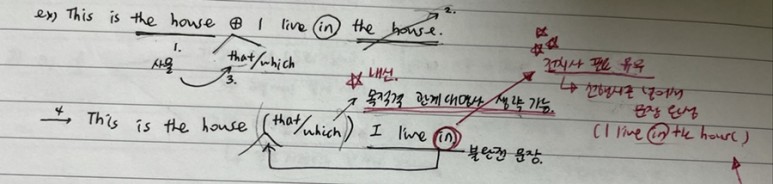 ex) This is the house ⊕ I live in the house.
1.
2.
사물
that/which
3.
☆ 내신.
목적격 관계대명사 생략 가능.
전치사 필요 유무
↳ 선행사로 넣어서
문장 완성
(I live in the house)
4 → This is the house (that/which) I live in
불완전 문장.